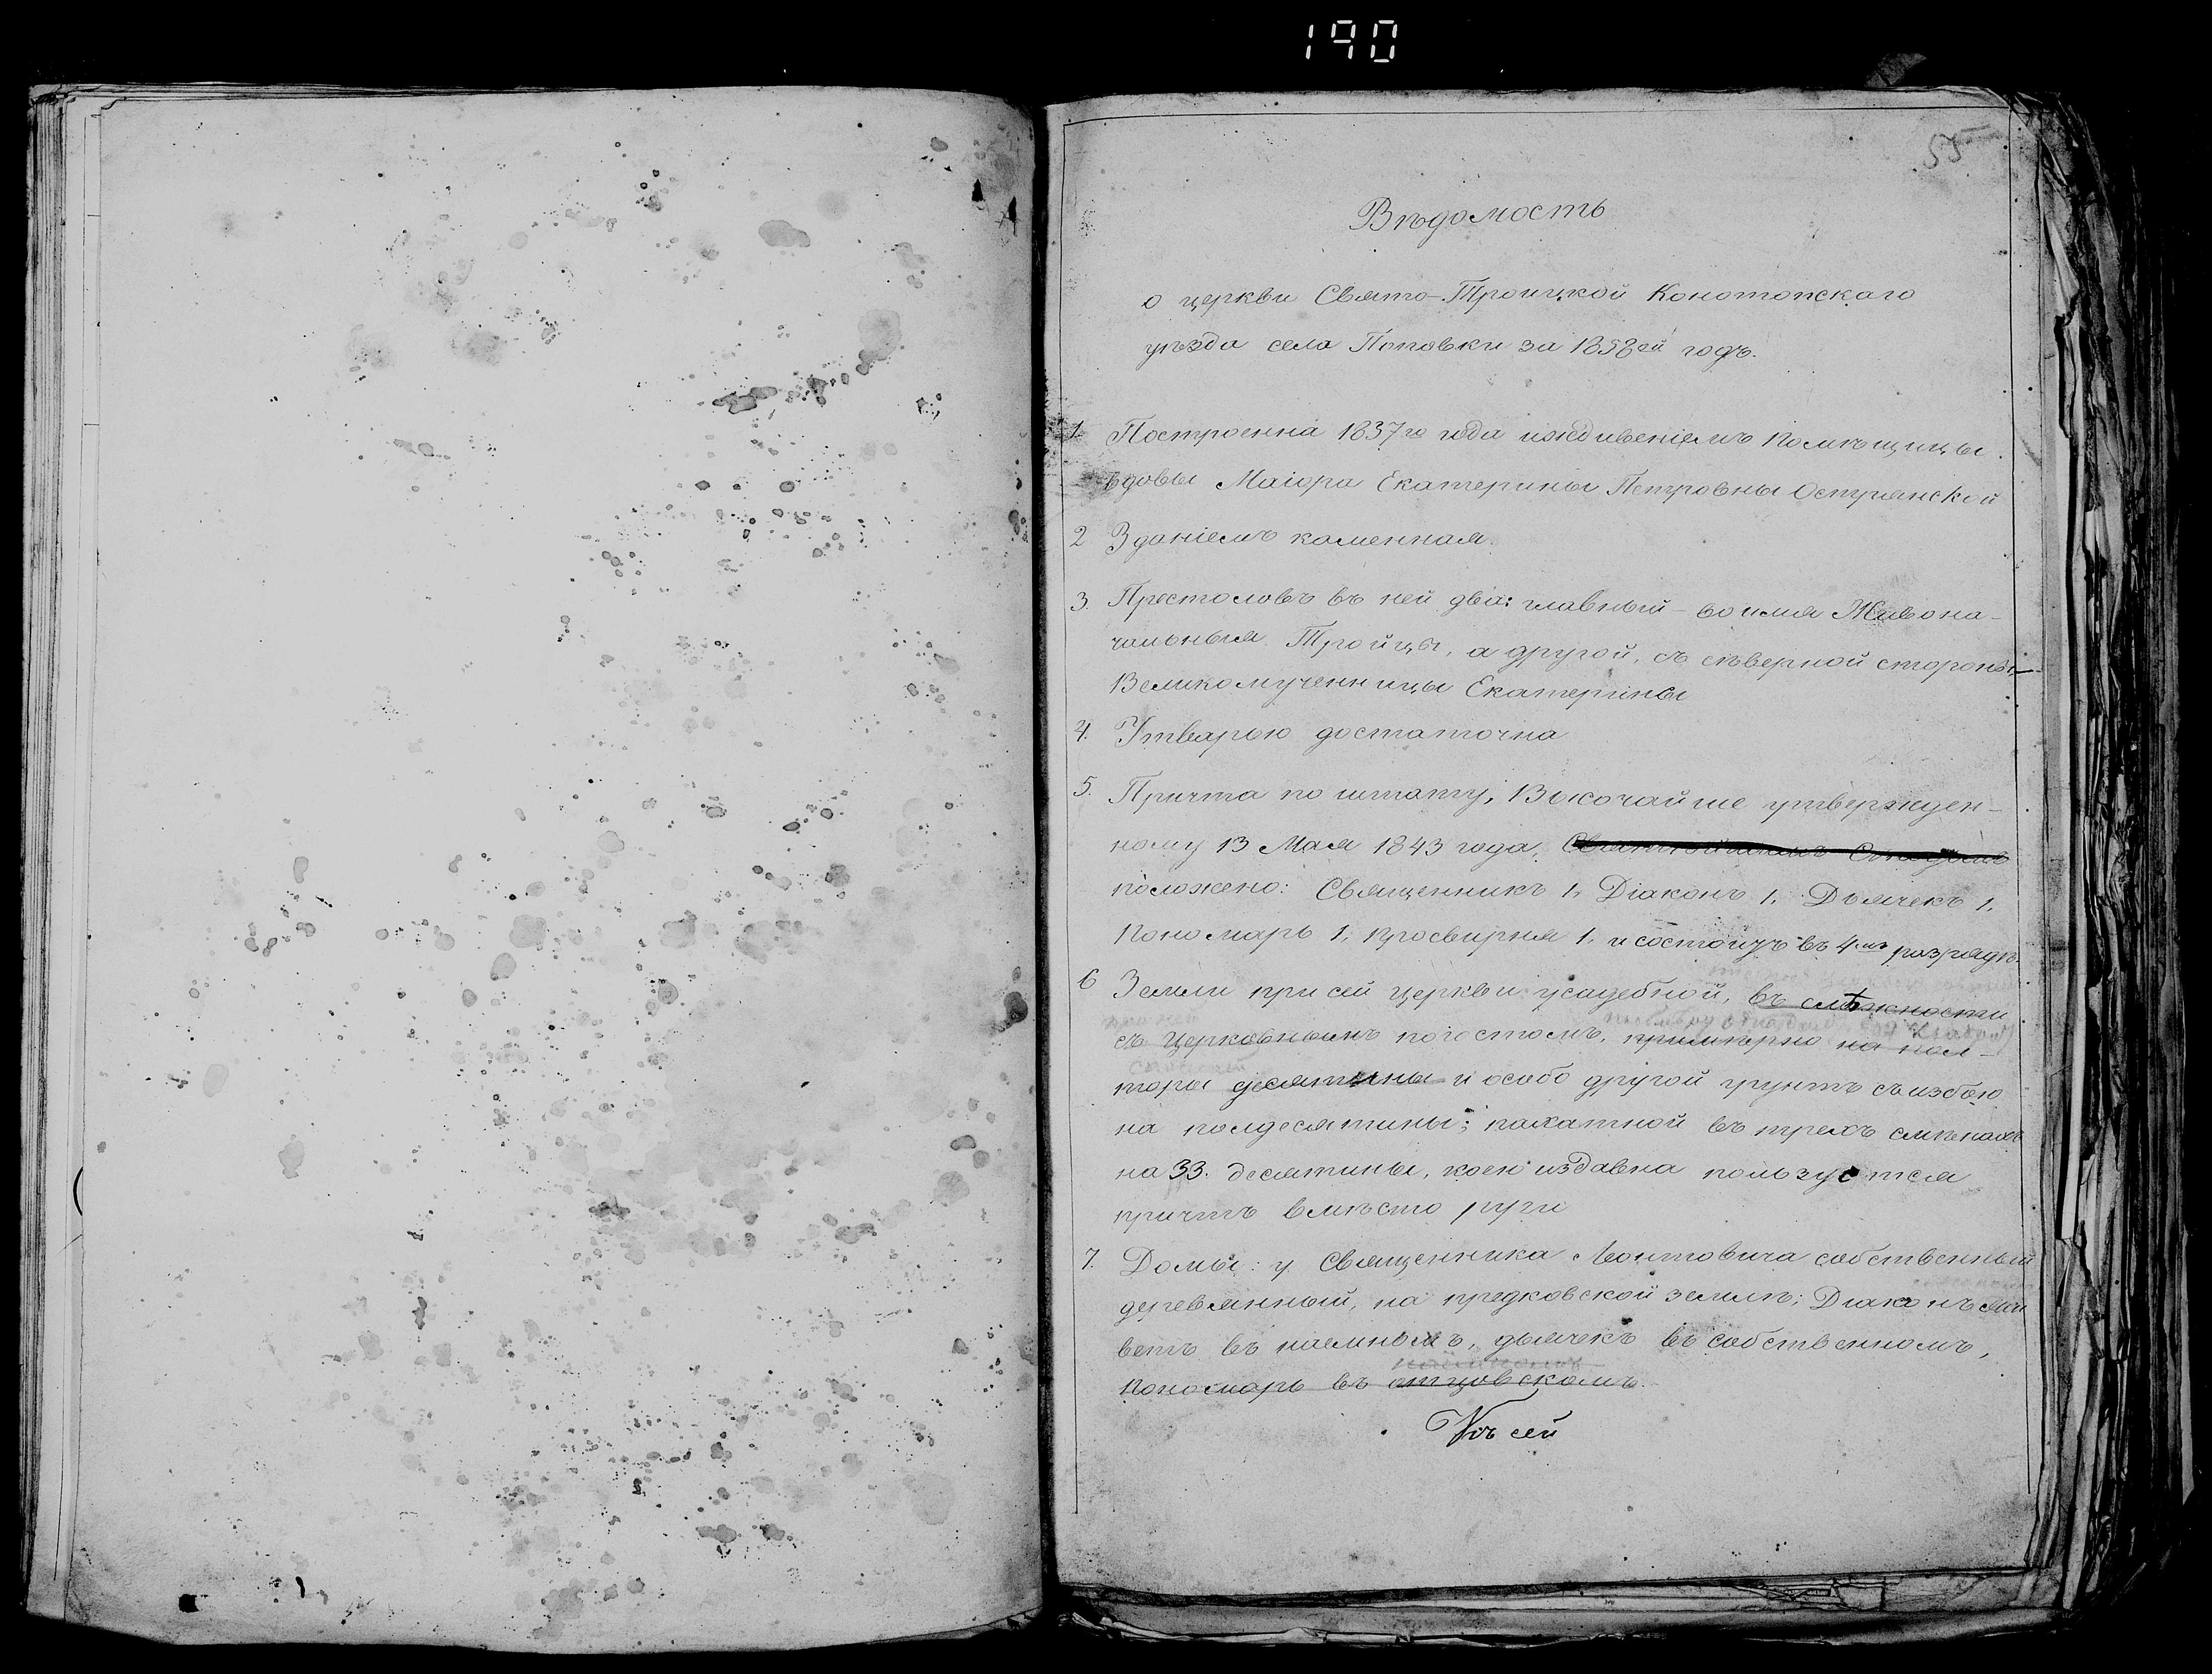 190
55
Вѣдомость
о церкви Свято-Троицкой Конотопскаго
уѣзда села Поповки за 1858ой годъ.
1. Построенна 1837го года иждивеніемъ помѣщицы
вдовы Маіора Екатерины Петровны Острянской
2 Зданіемъ каменная.
3. Престоловъ въ ней два: главный - во имя Живона-
чальныя Тройцы, а другой, съ сѣверной стороны,
Великомученницы Екатерины
4. Утварью достаточна
5. Причта по штату, Высочайше утвержден-
ному 13 Мая 1843 года,
положено: Священникъ 1, Діаконъ 1, Дьячекъ 1,
Пономарь 1, просвирня 1, и состоитъ въ 4мъ разрядѣ.
6 Земли при сей церкви усадебной, въ смѣжности
съ Церковнымъ погостомъ, примѣрно на пол-
торы десятины и особо другой грунтъ съ избою
на полдесятины; пахатной въ трехъ смѣнахъ
на 33. десятины, коею издавна пользуется
причтъ вмѣсто руги
7. Домы: у Священника Леонтовича собственный
деревянный, на предковской землѣ; Діаконъ жи
ветъ въ наемномъ, дьячекъ въ собственномъ,
пономарь въ отцовскомъ.
Къ сей